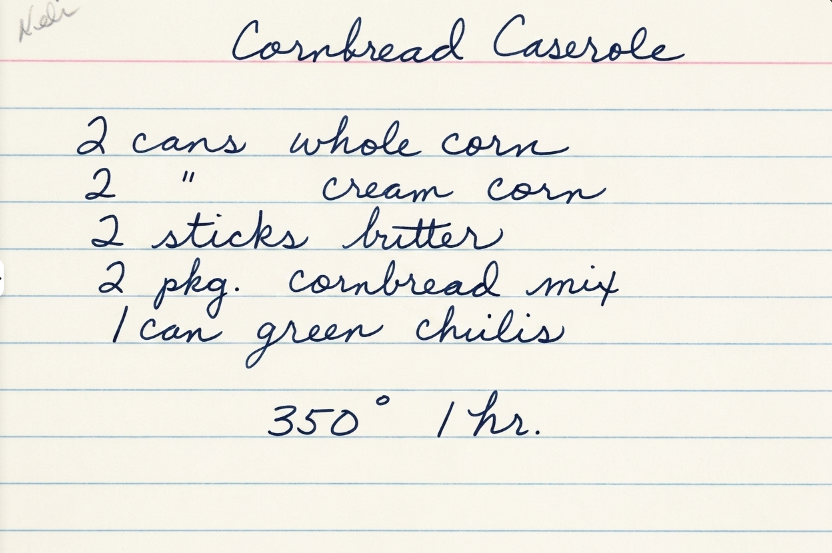 Cornbread Caserole
2 cans whole corn
2 " cream corn
2 sticks butter
2 pkg. cornbread mix
1 can green chiilis
350° 1 hr.